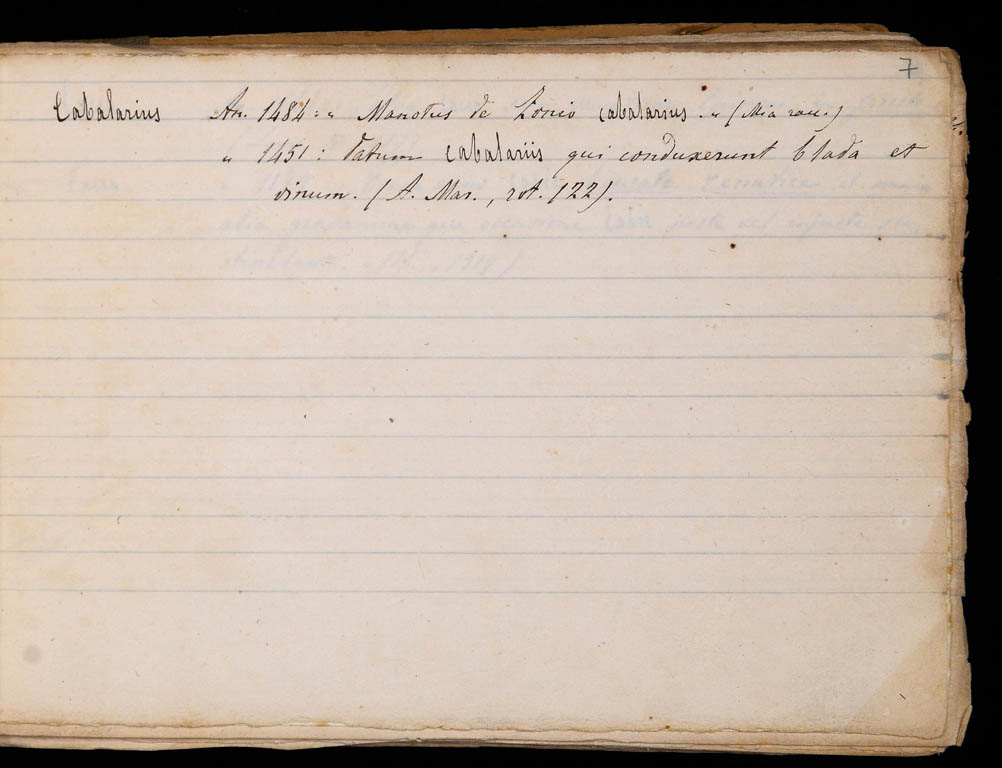 7
Cabalarius An. 1484: „ Manotus de Zonio cabalarius. „ (Mia racc.)
„ 1451: datum cabalariis qui conduxerunt blada et
vinum. (A. Mar., rot. 122).